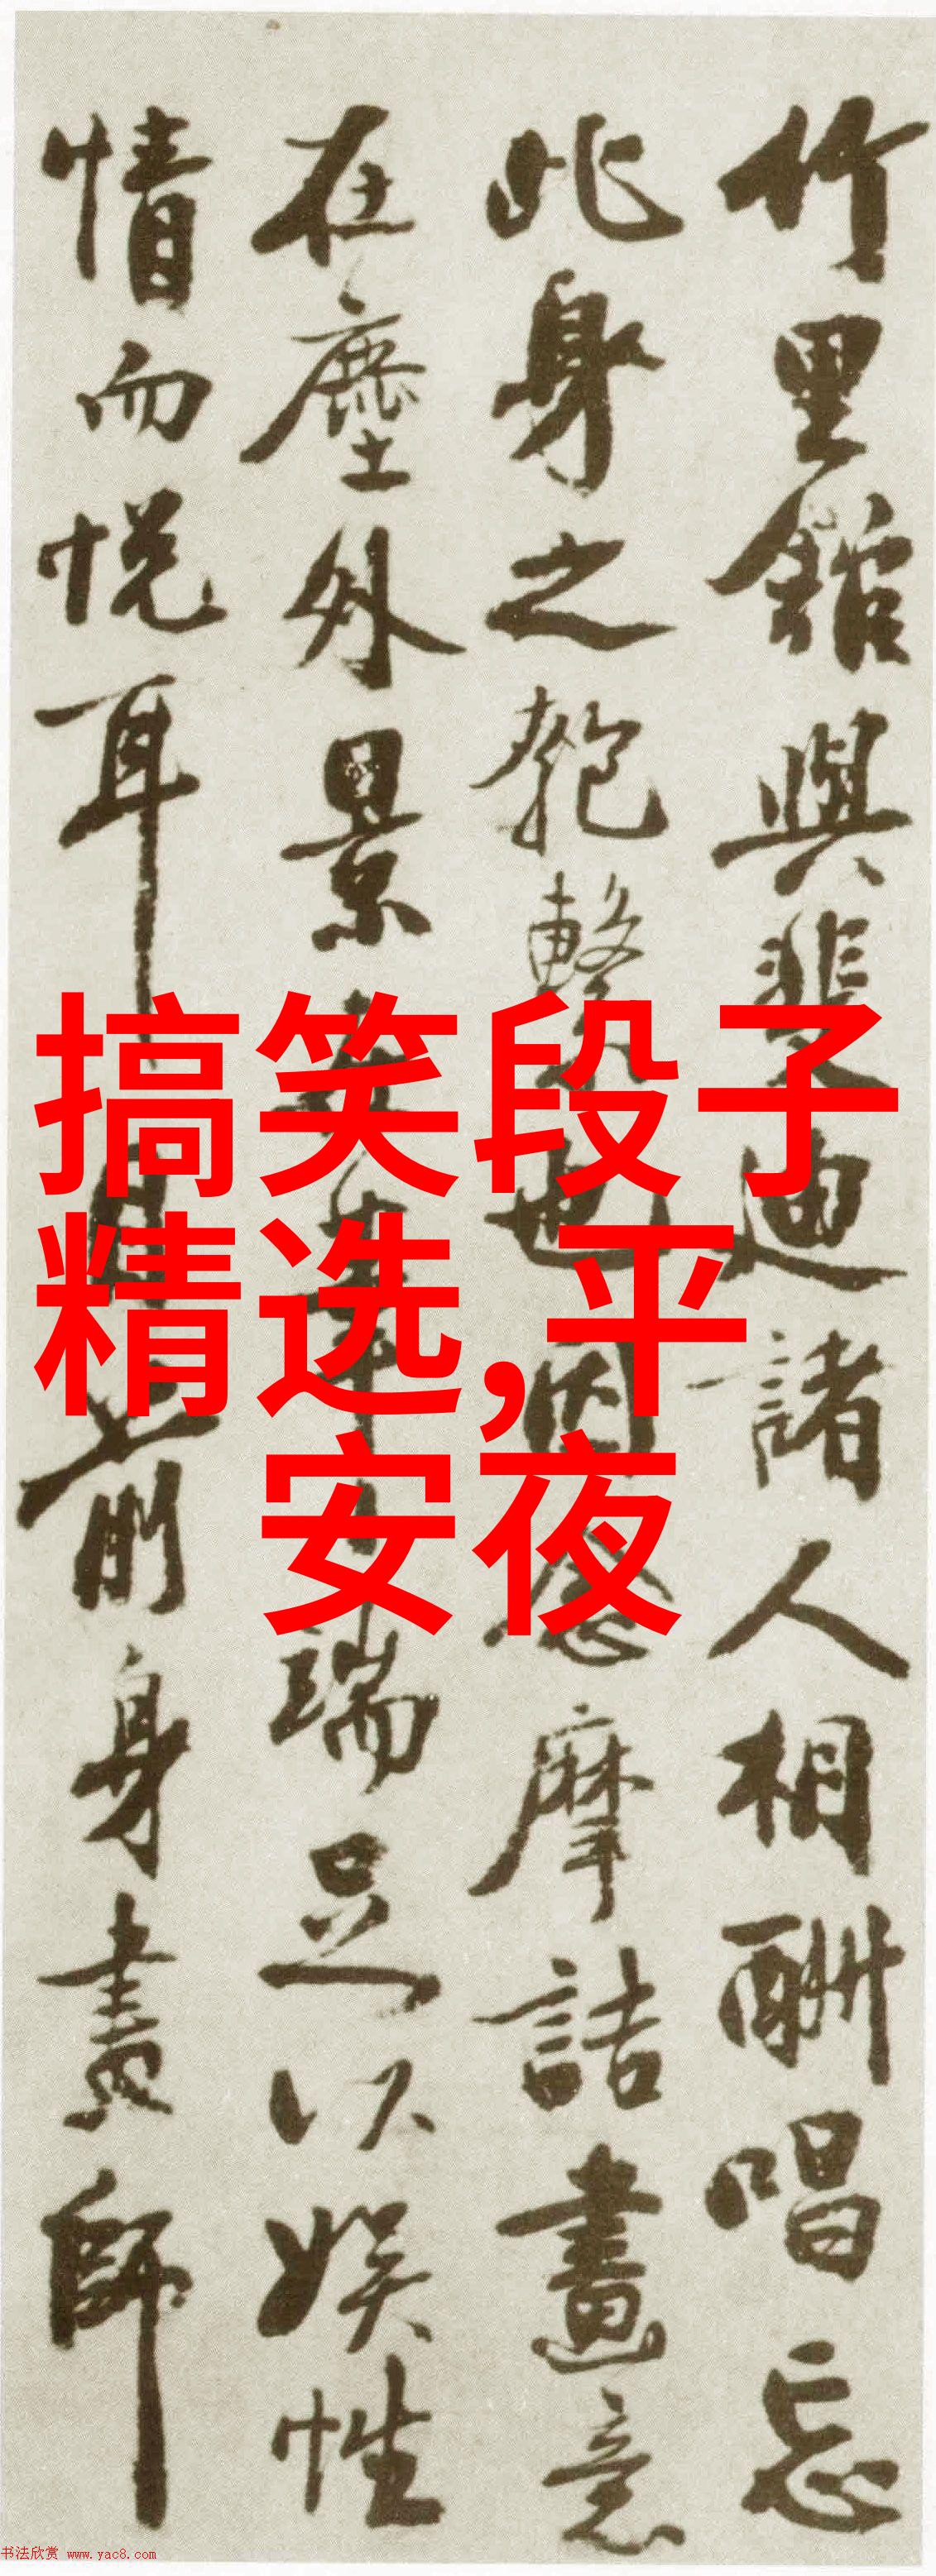 竹里館與裴迪諸人相酬唱忘
此身之匏繫也因念摩詰畫意
在塵外景端足以娛性
情而悅耳目前身畫師
搞笑段子
精选,平
安夜
书法欣赏 www.yac8.com